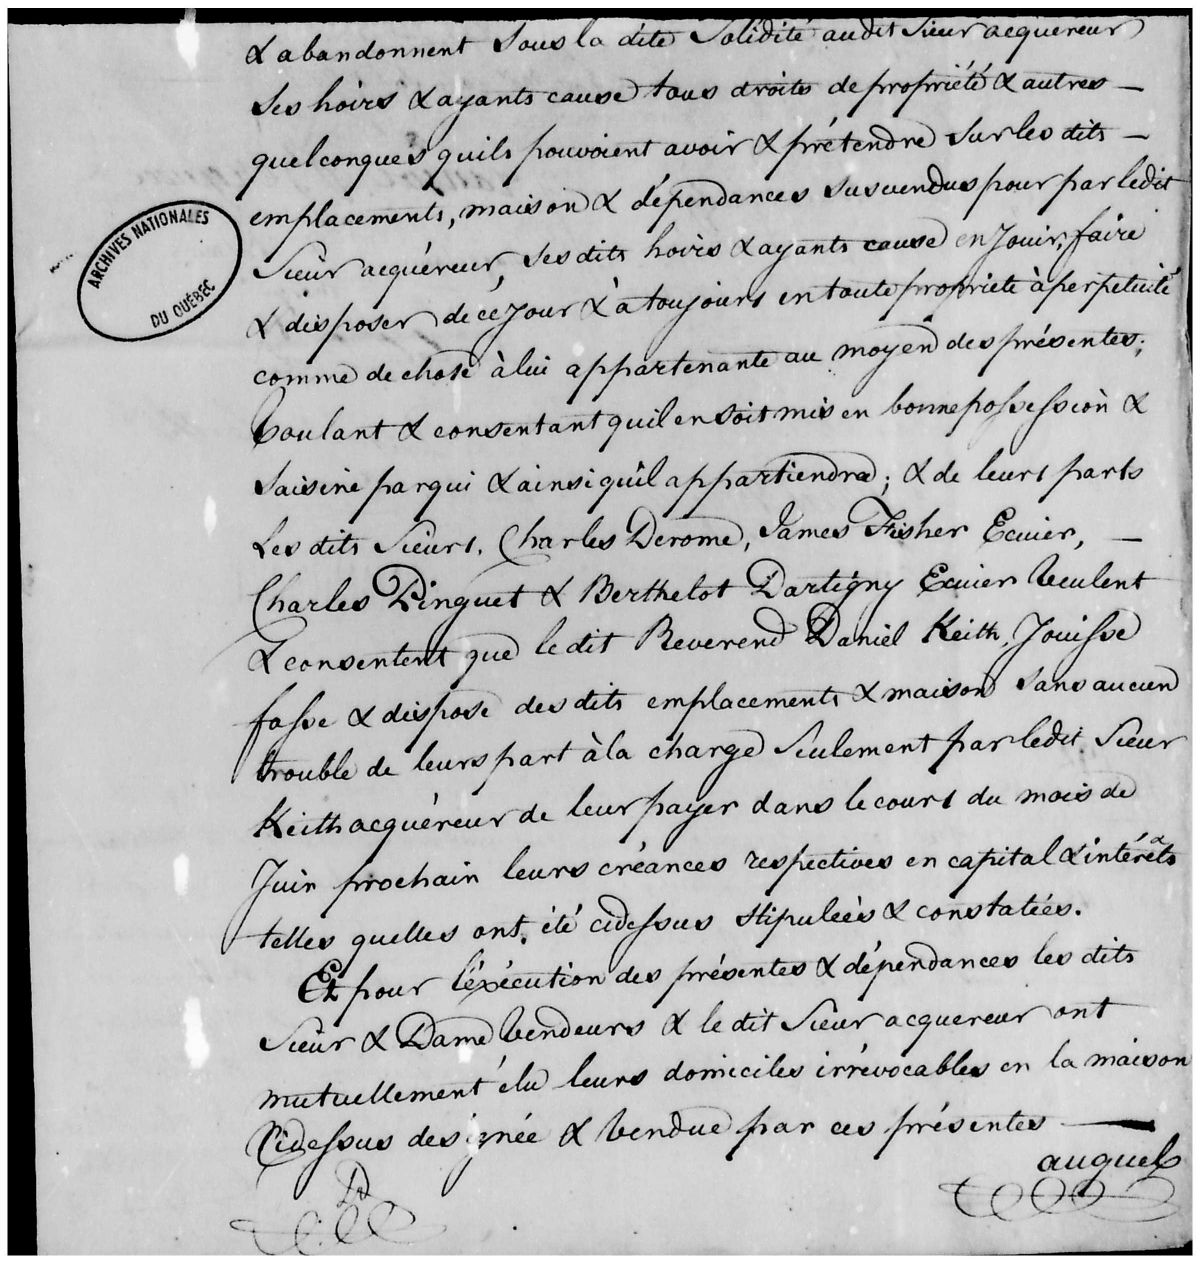 & abandonnent sous la dite solidité audit sieur acquereur
ses hoirs & ayants cause tous droits de propriété & autres —
quelconques quils pouvoient avoir & prétendre sur les dits —
emplacements, maison & dépendances susvendus pour par ledit
Sieur acquéreur, ses dits hoirs & ayants cause en Jouir, faire
& disposer de ce Jour & à toujours en toute propriété à perpetuité
comme de chose à lui appartenante au moyen des présentes;
Voulant & consentant quil en soit mis en bonne possession &
saisine par qui & ainsi quil appartiendra; & de leurs parts
Les dits Sieurs. Charles Derome, James Fisher Ecuier, —
Charles Pinguet & Berthelot Dartigny Ecuier Veulent
& consentent que le dit Reverend Daniel Keith, Jouisse
fasse & dispose des dits emplacements & maison sans aucun
trouble de leurs part à la charge seulement par ledit Sieur
Keith acquéreur de leur payer dans le court du mois de
Juin prochain leurs créances respectives en capital & intérêts
telles quelles ont été cidessus stipulées & constatées.
Et pour l'éxécution des présentes & dépendances les dits
Sieur & Dame Vendeurs & le dit Sieur acquereur ont
mutuellement élu leurs domiciles irrévocables en la maison
Cidessus designée & Vendue par ces présentes —
auquel
ARCHIVES NATIONALES
DU QUÉBEC